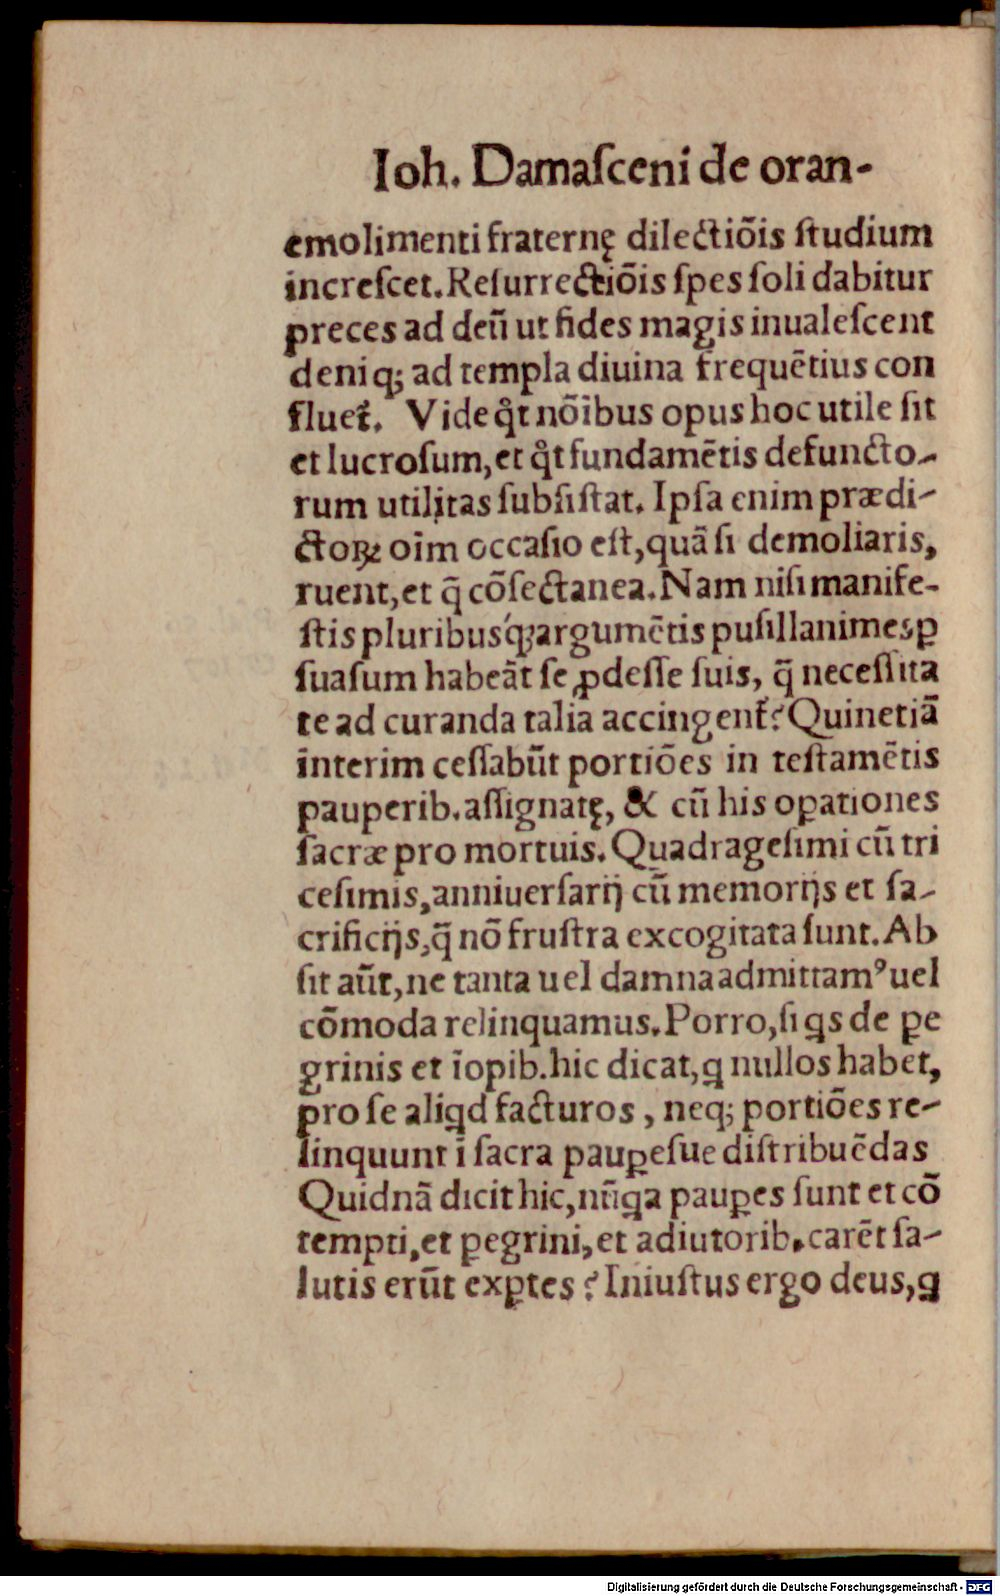 Ioh. Damaſceni de oran-
emolimenti fraternę dilectiōis ſtudium
increſcet. Reſurrectiōis ſpes ſoli dabitur
preces ad deū ut fides magis inualeſcent
deniq; ad templa diuina frequētius con
fluet᷑. Vide qͥt nōibus opus hoc utile ſit
et lucroſum, et qͥt fundamētis defuncto-
rum utilitas ſubſiſtat. Ipſa enim prædi-
ctoꝝ oīm occaſio eſt, quā ſi demoliaris,
ruent, et q̄ cōſectanea. Nam niſi manife-
ſtis pluribusq́; argumētis puſillanimes ꝑ
ſuaſum habeāt ſe ꝓdeſſe ſuis, q̄ neceſſita
te ad curanda talia accingent᷑? Quinetiā
interim ceſſabūt portiōes in teſtamētis
pauperib. aſſignatę, & cū his oꝑationes
ſacræ pro mortuis. Quadrageſimi cū tri
ceſimis, anniuerſarij cū memorijs et ſa-
crificijs, q̄ nō fruſtra excogitata ſunt. Ab
ſit aūt, ne tanta uel damna admittamꝰ uel
cōmoda relinquamus. Porro, ſi qs de ꝑe
grinis et īopib. hic dicat, q nullos habet,
pro ſe aliqd facturos, neq; portiōes re-
linquunt ī ſacra pauꝑeſue diſtribuēdas
Quidnā dicit hic, nūqa pauꝑes ſunt et cō
tempti, et ꝑegrini, et adiutorib. carēt ſa-
lutis erūt exꝑtes? Iniuſtus ergo deus, q
Digitalisierung gefördert durch die Deutsche Forschungsgemeinschaft - DFG